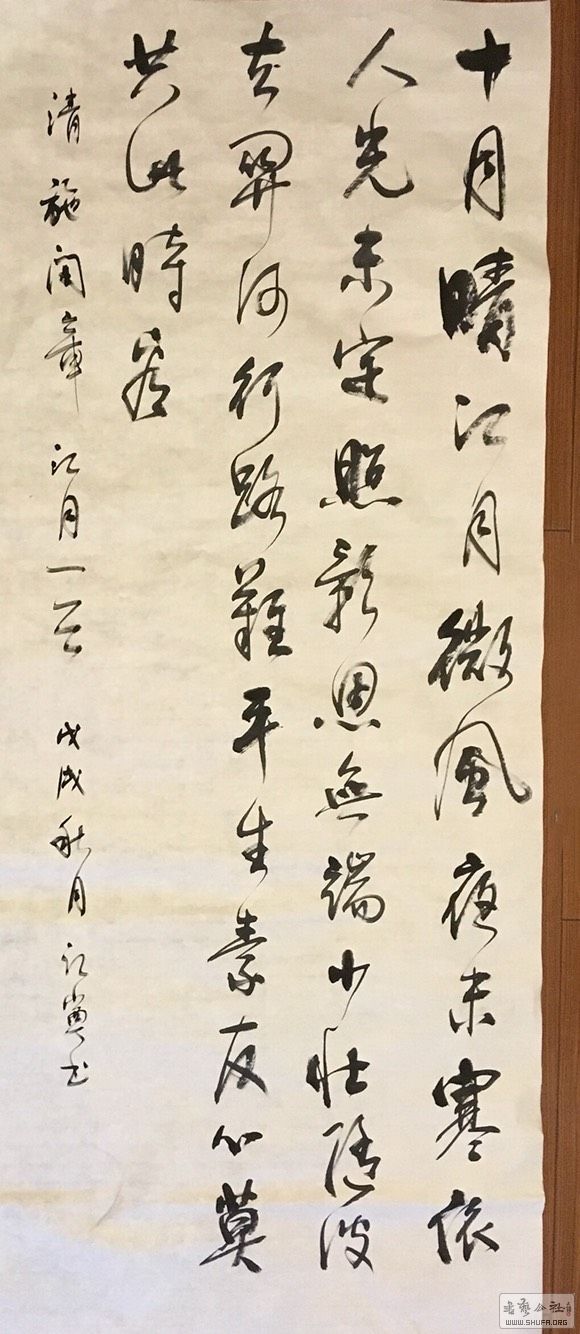 十月晴江月微風夜未寒依
人光未定照影思無端少壯隨波
去關河行路難平生素友心莫
共此時看
清施閏章江月一首 戊戌秋月江岸書
書藝公社
WWW.SHUFA.ORG